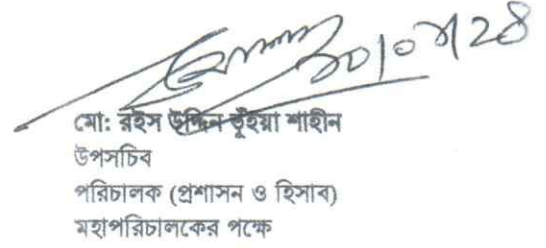 মো: রইস উদ্দিন ভূঁইয়া শাহীন
উপসচিব
পরিচালক (প্রশাসন ও হিসাব)
মহাপরিচালকের পক্ষে